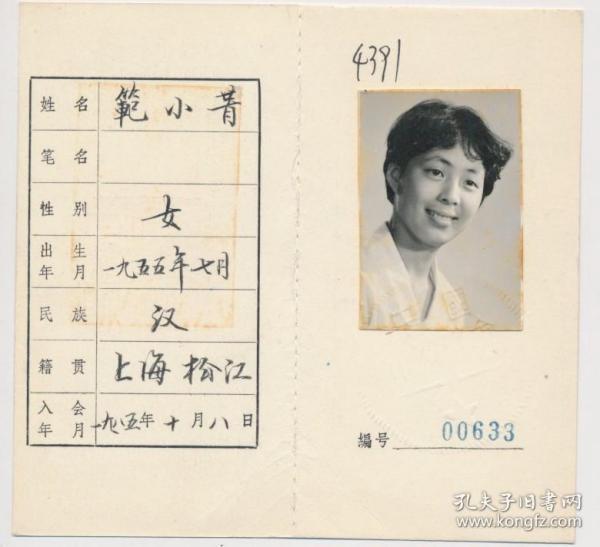 姓名 範小青
笔名
性别 女
出生年月 一九五五年七月
民族 汉
籍贯 上海 松江
入会年月 一九八五年十月八日
4391
编号 00633
孔夫子旧书网
www.kongfz.com